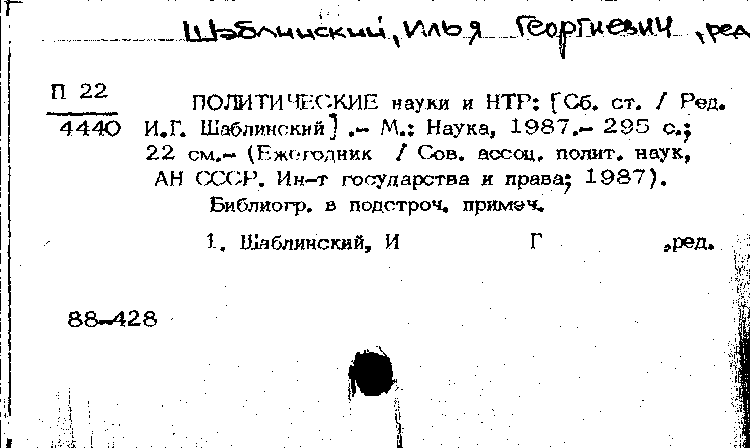 Шаблинский, Илья Георгиевич, ред
П 22
4440
ПОЛИТИЧЕСКИЕ науки и НТР: [Сб. ст. / Ред.
И.Г. Шаблинский] .– М.: Наука, 1987.– 295 с.;
22 см.– (Ежегодник / Сов. ассоц. полит. наук,
АН СССР. Ин-т государства и права; 1987).
Библиогр. в подстроч. примеч.
1. Шаблинский, И Г ,ред.
88-428